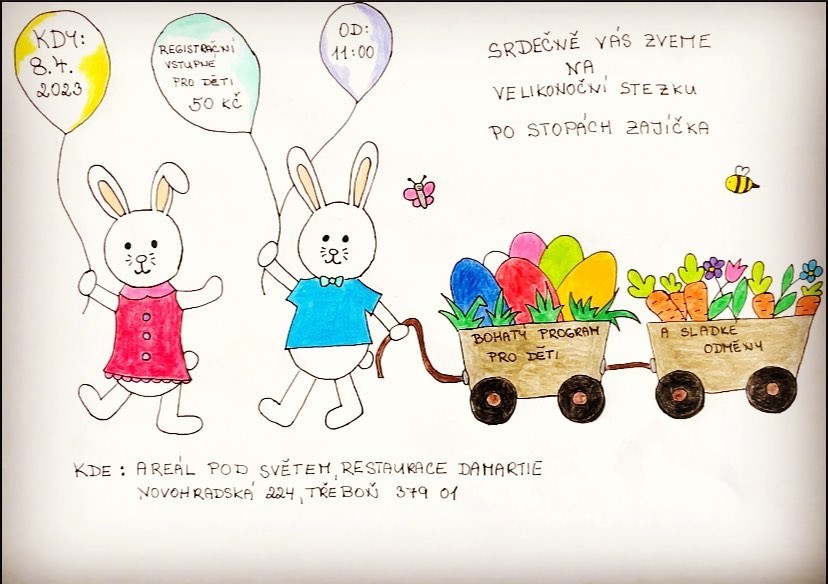 KDY:
8.4.
2023
REGISTRAČNÍ
VSTUPNÉ
PRO DĚTI
50 KČ
OD:
11:00
SRDEČNĚ VÁS ZVEME
NA
VELIKONOČNÍ STEZKU
PO STOPÁCH ZAJÍČKA
BOHATÝ PROGRAM
PRO DĚTI
A SLADKÉ
ODMĚNY
KDE: AREÁL POD SVĚTEM, RESTAURACE DAMARTIE
NOVOHRADSKÁ 224, TŘEBOŇ 379 01